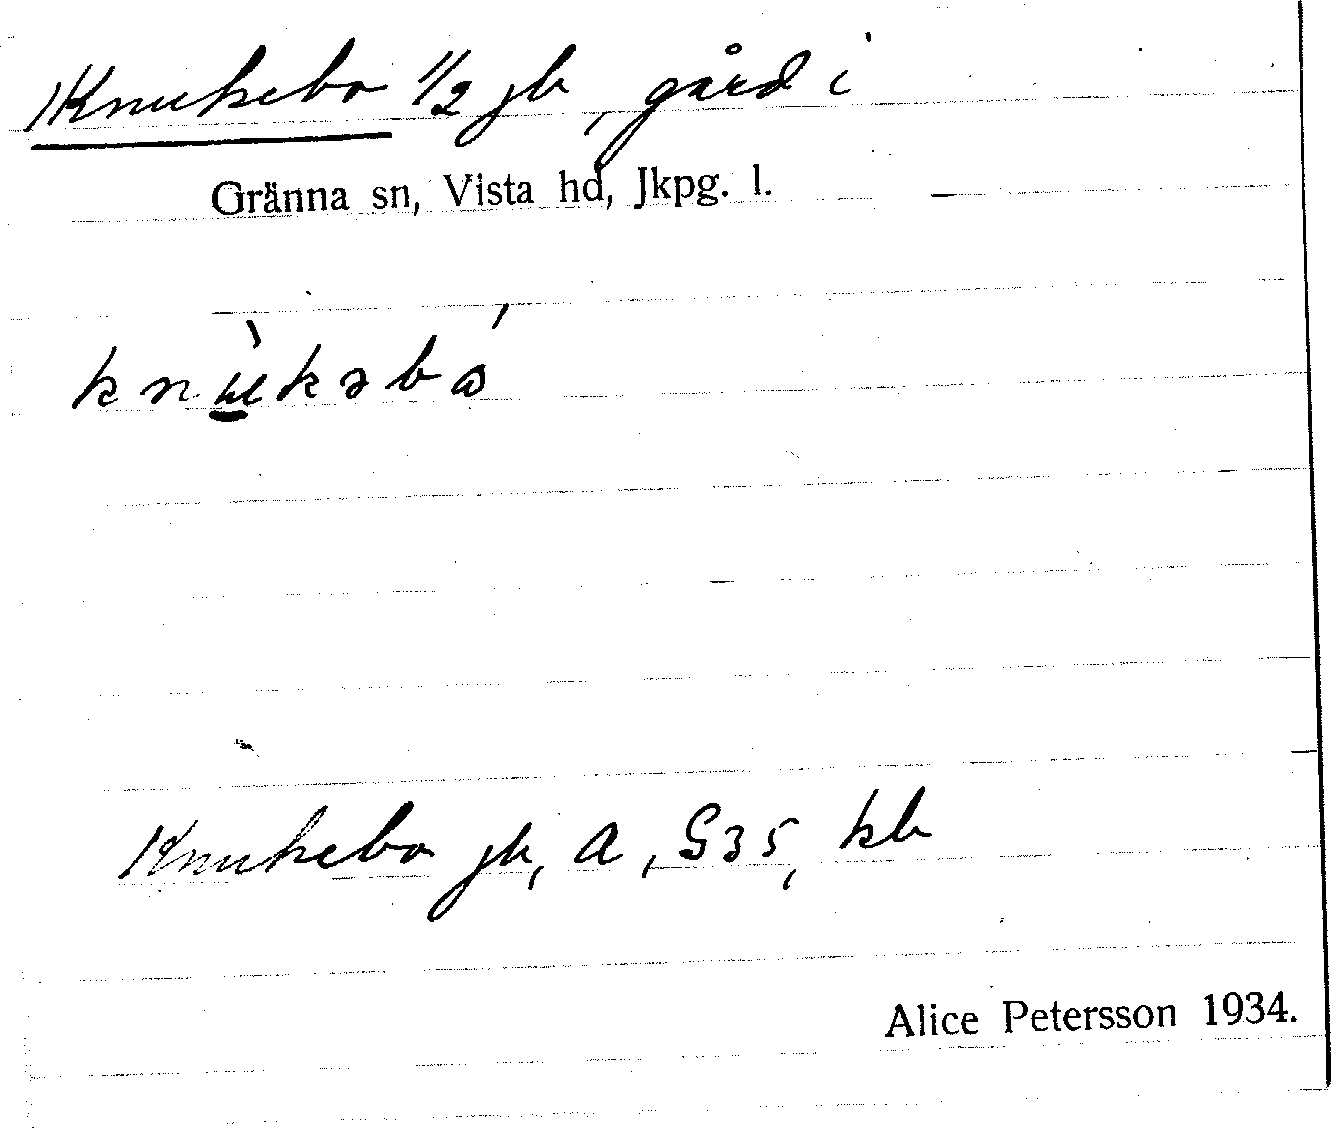 Knukebo 1/2 jb, gård i
Gränna sn, Vista hd, Jkpg. l.
knùkəbǿ
Knukebo jb, A, G35, kb
Alice Petersson 1934.